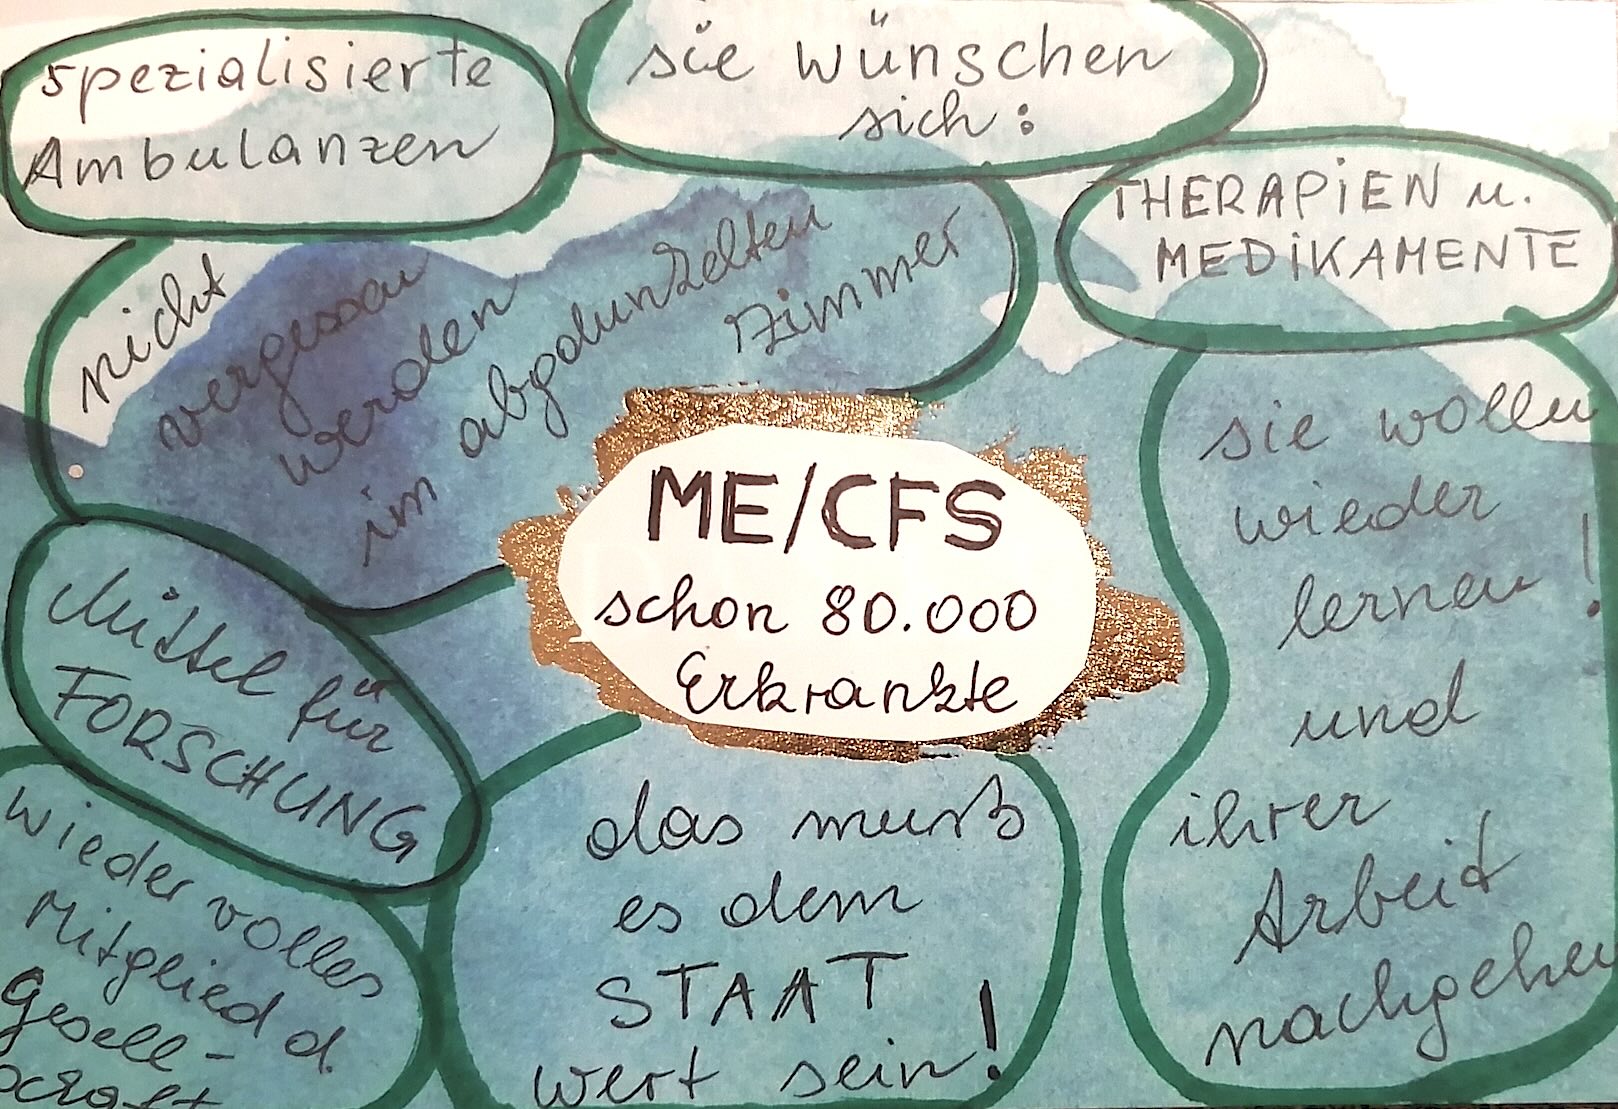 spezialisierte
Ambulanzen
sie wünschen
sich:
THERAPiEN u.
MEDiKAMENTE
nicht
vergessen
werden
im abgedunkelten
Zimmer
ME/CFS
schon 80.000
Erkrankte
sie wollen
wieder
lernen!
und
ihrer
Arbeit
nachgehen
Mittel für
FORSCHUNG
wieder volles
Mitglied d.
Gesell-
schaft
das muß
es dem
STAAT
wert sein!